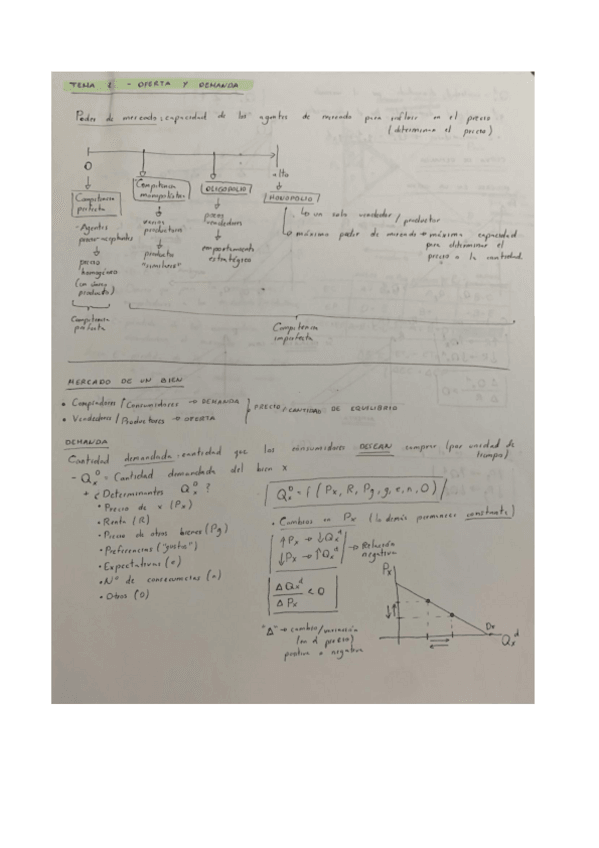 TEMA 2 - OFERTA Y DEMANDA
Poder de mercado: capacidad de los agentes de mercado para influir en el precio
(determinar el precio)
0
alto
Competencia perfecta
Competencia monopolística
OLIGOPOLIO
MONOPOLIO
- Agentes
precio-aceptantes
precio
homogéneo
(un único
producto)
varios
productores
producto
"similares"
pocos
vendedores
comportamiento
estratégico
↳ un solo vendedor / productor
↳ máximo poder de mercado → máxima capacidad
para determinar el
precio o la cantidad.
Competencia
perfecta
Competencia
imperfecta
MERCADO DE UN BIEN
• Compradores / Consumidores → DEMANDA
• Vendedores / Productores → OFERTA
PRECIO / CANTIDAD DE EQUILIBRIO
DEMANDA
Cantidad demandada: cantidad que los consumidores DESEAN comprar (por unidad de
tiempo)
- Qxᴰ = Cantidad demandada del bien x
+ ¿Determinantes Qxᴰ?
• Precio de x (Px)
• Renta (R)
• Precio de otros bienes (Pg)
• Preferencias ("gustos")
• Expectativas (e)
• Nº de consumidores (n)
• Otros (O)
Qxᴰ = f (Px, R, Pg, g, e, n, O)
• Cambios en Px (lo demás permanece constante)
↑Px → ↓Qxᵈ
↓Px → ↑Qxᵈ
→ Relación
negativa
ΔQxᵈ / ΔPx < 0
"Δ" → cambio/variación
(en el precio)
positiva o negativa
Px
Dx
Qxᵈ